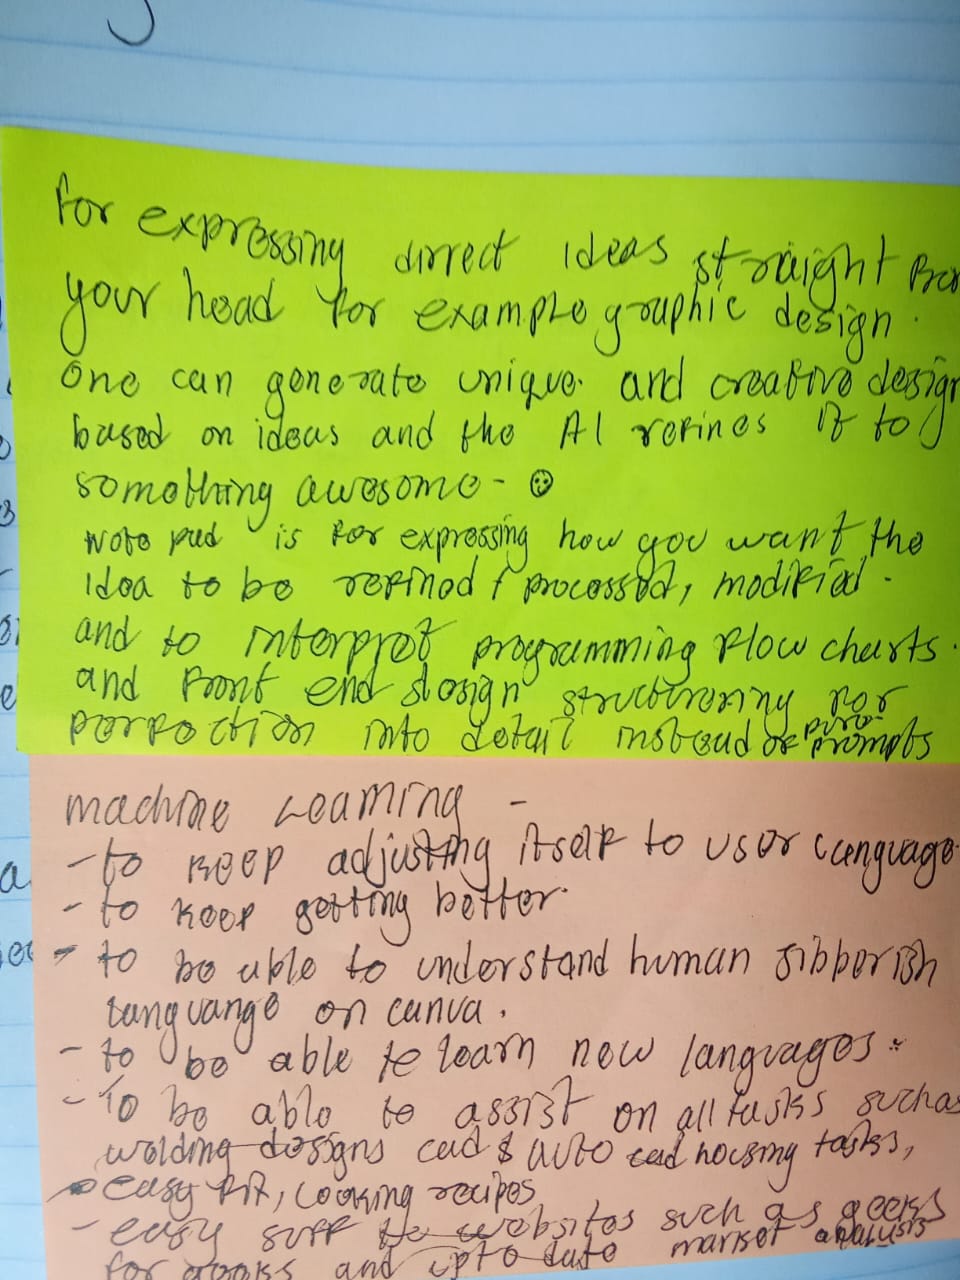 for expressing dirrect ideas straight from
your head for example graphic design.
One can generate unique. and creative design
based on ideas and the AI refines it to
something awesome - ☺
Note pad is for expressing how you want the
idea to be refined / processed, modified.
and to interpret programming flow charts.
and front end design structurering for
perfection into detail instead of pure prompts
machine Learning -
- to keep adjusting itself to user language
- to keep getting better.
- to be able to understand human jibberish
languange on canva.
- to be able to learn new languages.
- To be able to assist on all tasks such as
welding designs cad & auto cad housing tasks,
easy fit, cooking recipes
- easy surf to websites such as geeks
for geeks and upto date market analysis